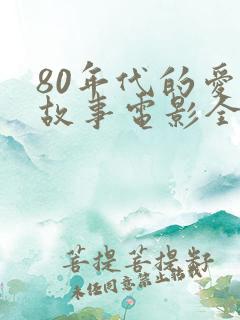 80年代的爱
故事电影全
菩提菩提籽
未经同意禁止转载